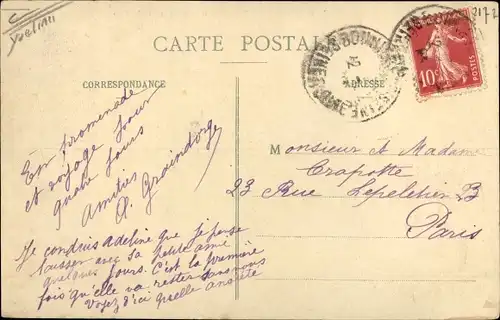 Yvelines
2172
CARTE POSTALE
CORRESPONDANCE
ADRESSE
10
En promenade
et voyage pour
quatre jours
amitiés
A. Graindorge
Je conduis adeline que je pense
laisser avec sa petite amie
quelques jours. C'est la première
fois qu'elle va rester sans nous
Voyez d'ici quelle
Monsieur et Madame
Crapotte
23 Rue Lepeletier
Paris